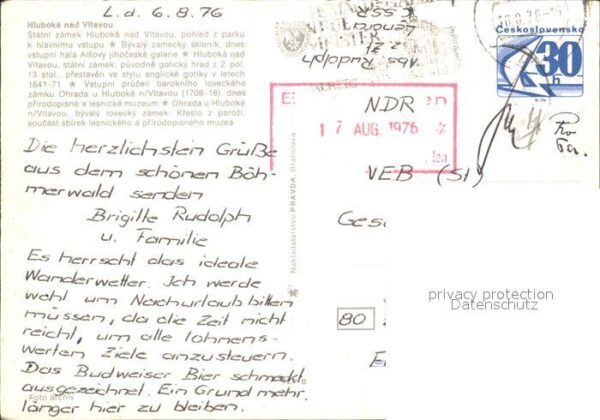 L.d. 6.8.76
Hluboká nad Vltavou
Státní zámek Hluboká nad Vltavou, pohled z parku
k hlavnímu vstupu ★ Bývalý zámecký skleník, dnes
vstupní hala Alšovy jihočeské galerie ★ Hluboká nad
Vltavou, státní zámek; původně gotický hrad z 2. pol.
13. stol., přestavěn ve stylu anglické gotiky v letech
1841–71 ★ Vstupní průčelí barokního loveckého
zámku Ohrada u Hluboké n/Vltavou (1708–18), dnes
přírodopisné a lesnické muzeum ★ Ohrada u Hluboké
n/Vltavou, bývalý lovecký zámek. Křeslo z paroží,
součást sbírek lesnického a přírodopisného muzea
Die herzlichsten Grüße
aus dem schönen Böh-
merwald senden
Brigitte Rudolph
u. Familie
Es herrscht das ideale
Wanderwetter. Ich werde
wohl um Nachurlaub bitten
müssen, da die Zeit nicht
reicht, um alle lohnens-
werten Ziele anzusteuern.
Das Budweiser Bier schmeckt
ausgezeichnet. Ein Grund mehr,
länger hier zu bleiben.
Foto archiv
Nakladatelství PRAVDA, Bratislava
Abs. Rudolph
z. Zt.
Lenora
ČSSR
Československo
30
h
NDR
17 AUG. 1976
VEB (St)
80
privacy protection
Datenschutz